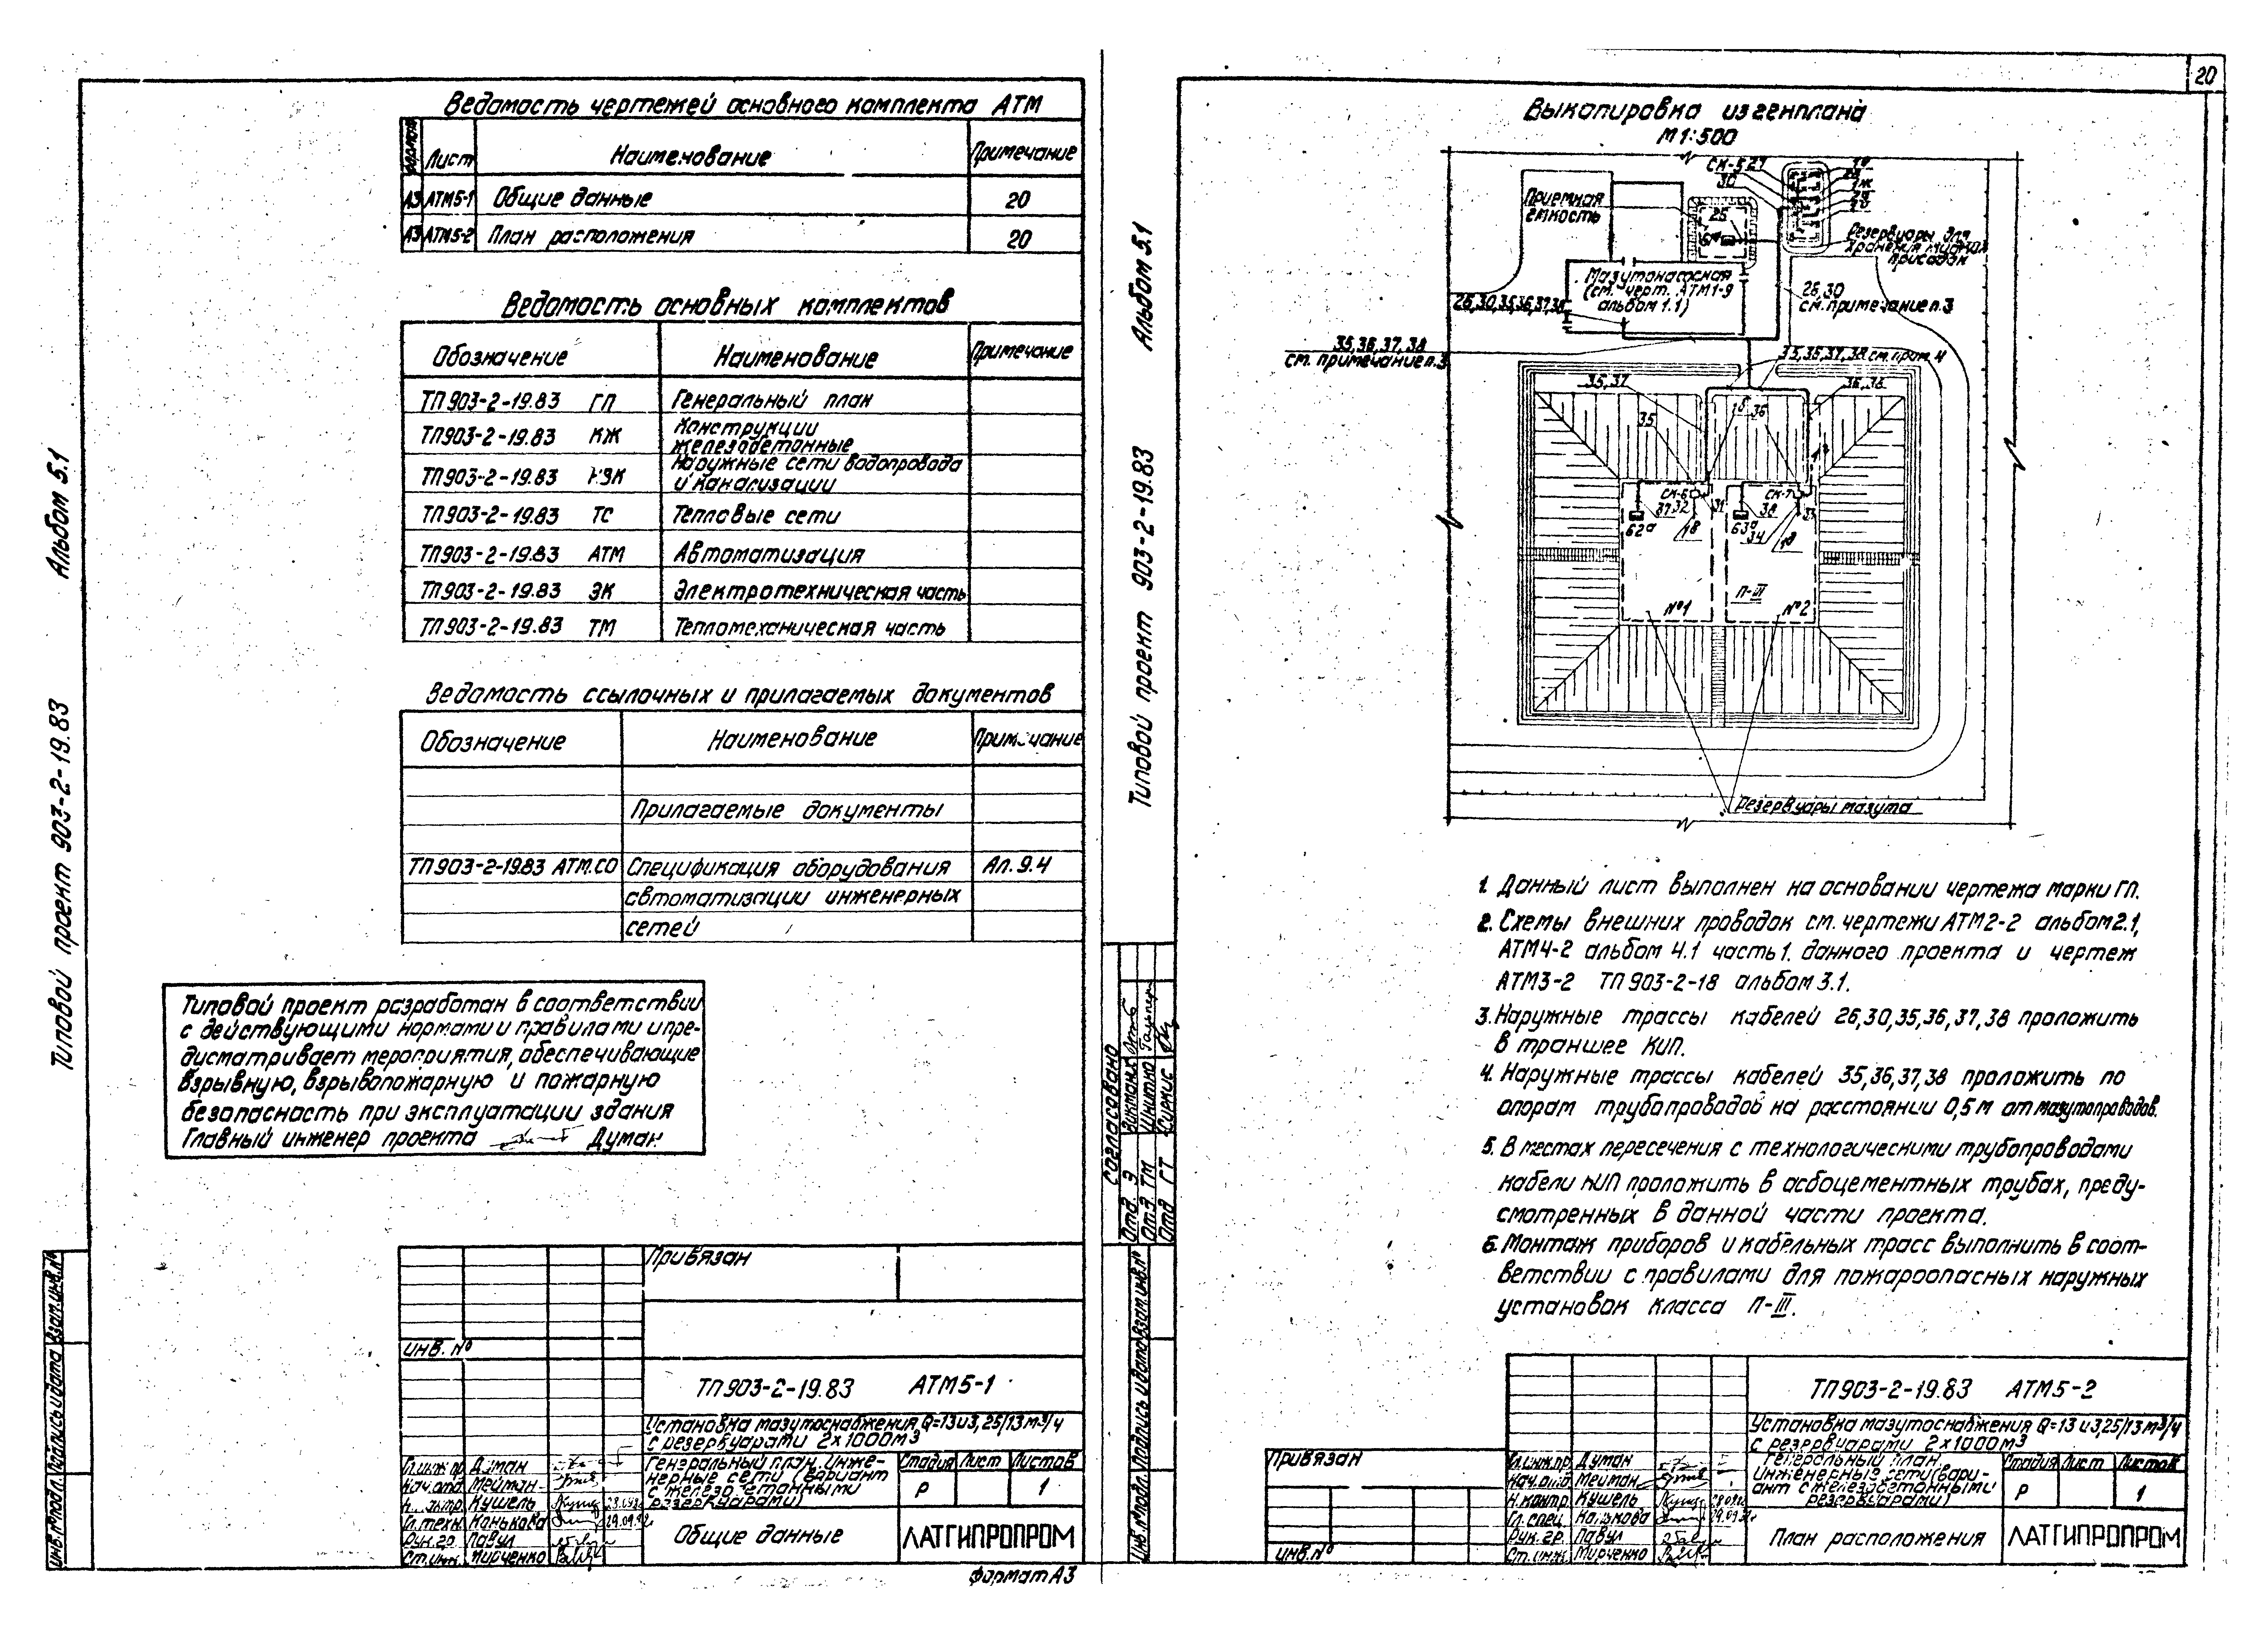 Альбом 5.1
Типовой проект 903-2-19.83
Взам.инв.№
Подпись и дата
Инв.№подл.
Ведомость чертежей основного комплекта АТМ
Формат
Лист
Наименование
Примечание
А3 АТМ5-1 Общие данные 20
А3 АТМ5-2 План расположения 20
Ведомость основных комплектов
Обозначение
Наименование
Примечание
ТП903-2-19.83 ГП Генеральный план
ТП903-2-19.83 КЖ Конструкции
железобетонные
ТП903-2-19.83 НВК Наружные сети водопровода
и канализации
ТП903-2-19.83 ТС Тепловые сети
ТП903-2-19.83 АТМ Автоматизация
ТП903-2-19.83 ЭК Электротехническая часть
ТП903-2-19.83 ТМ Тепломеханическая часть
Ведомость ссылочных и прилагаемых документов
Обозначение
Наименование
Примечание
Прилагаемые документы
ТП903-2-19.83 АТМ.СО Спецификация оборудования Ал.9.4
автоматизации инженерных
сетей
Типовой проект разработан в соответствии
с действующими нормами и правилами и пре-
дусматривает мероприятия, обеспечивающие
взрывную, взрывопожарную и пожарную
безопасность при эксплуатации здания
Главный инженер проекта Думан
Привязан
инв. №
ТП903-2-19.83 АТМ5-1
Установка мазутоснабжения Q=13 и 3,25/13 м³/ч
с резервуарами 2х1000м3
Генеральный план. Инже-
нерные сети (вариант
с железобетонными
резервуарами)
Стадия Лист Листов
Р 1
Гл.инж.пр. Думан
Нач.отд. Мейман
Н.контр. Кушель
Гл.техн. Конькова 29.09.82г
Рук.гр. Павул
Ст.инж. Мирченко
Общие данные
ЛАТГИПРОПРОМ
Формат А3
20
Альбом 5.1
Типовой проект 903-2-19.83
Согласовано
Отд. Э
Отд. ТМ
Отд ГТ
Взам.инв.№
Подпись и дата
Инв.№подл.
Выкопировка из генплана
М1:500
СК-5 27
30
Приемная
емкость
25
Резервуары для
хранения жидких
присадок
Мазутонасосная
(см. черт. АТМ1-9
альбом 1.1)
26,30,35,36,37,38
26,30
см. примечание п.3
35,36,37,38
см. примечание п.3
35,36,37,38 см. прим. 4
35,37
36,38
35
18
36
СК-6
37 32
31
62а
18
СК-7
38
33
63а
34
18
П-III
№1
№2
Резервуары мазута
1. Данный лист выполнен на основании чертежа марки ГП.
2. Схемы внешних проводок см. чертежи АТМ2-2 альбом 2.1,
АТМ4-2 альбом 4.1 часть 1. данного проекта и чертеж
АТМ3-2 ТП 903-2-18 альбом 3.1.
3. Наружные трассы кабелей 26,30,35,36,37,38 проложить
в траншее КИП.
4. Наружные трассы кабелей 35,36,37,38 проложить по
опорам трубопроводов на расстоянии 0,5 м от мазутопроводов.
5. В местах пересечения с технологическими трубопроводами
кабели КИП проложить в асбоцементных трубах, преду-
смотренных в данной части проекта.
6. Монтаж приборов и кабельных трасс выполнить в соот-
ветствии с правилами для пожароопасных наружных
установок класса П-III.
Привязан
инв.№
ТП903-2-19.83 АТМ5-2
Установка мазутоснабжения Q=13 и 3,25/13 м³/ч
с резервуарами 2х1000м3
Генеральный план.
Инженерные сети (вари-
ант с железобетонными
резервуарами)
Стадия Лист Листов
Р 1
Гл.инж.пр. Думан
Нач.отд Мейман
Н.контр. Кушель
Гл.спец. Конькова
Рук.гр. Павул
Ст.инж. Мирченко
План расположения
ЛАТГИПРОПРОМ